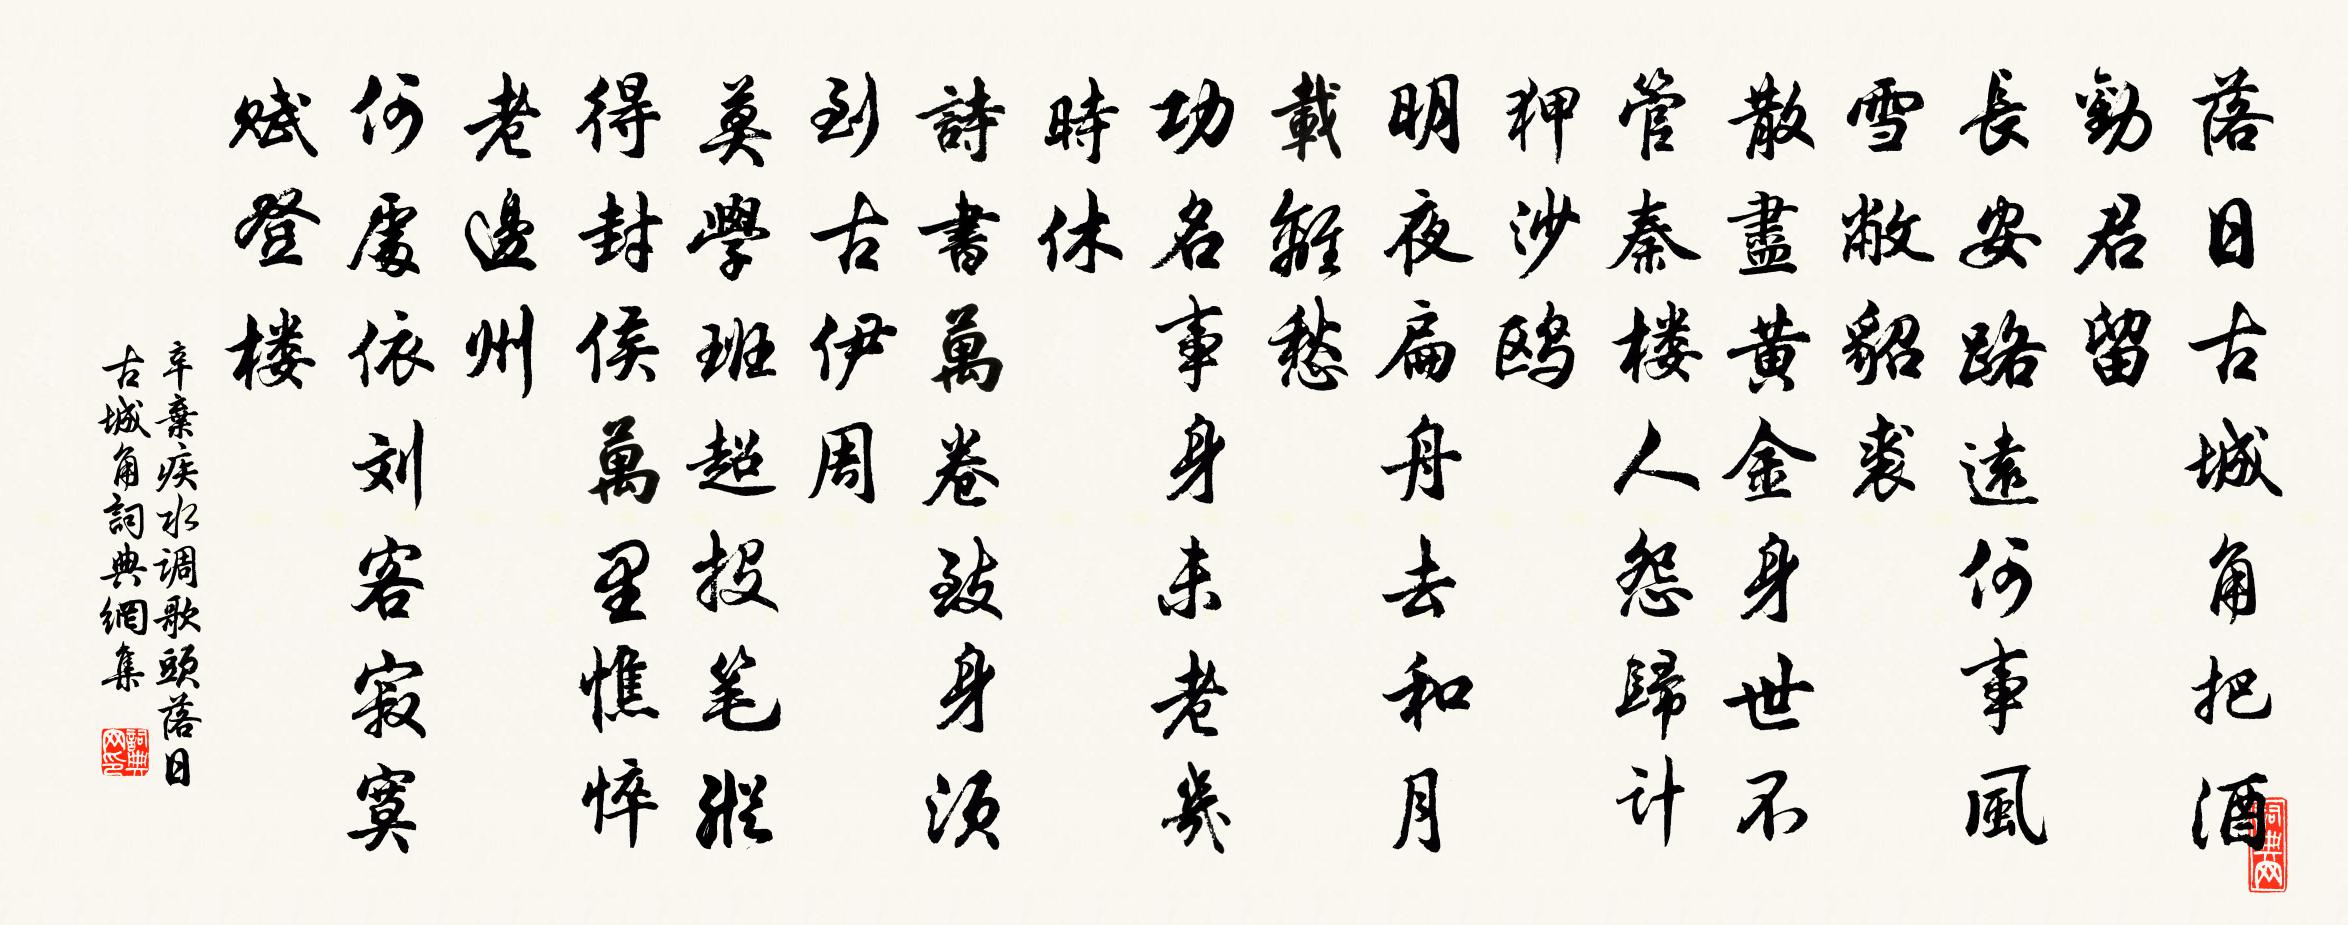 落日古城角把酒
勸君留
長安路遠何事風
雪敝貂裘
散盡黄金身世不
管秦楼人怨歸计
狎沙鸥
明夜扁舟去和月
載離愁
功名事身未老幾
時休
詩書萬卷致身须
到古伊周
莫學班超投笔縱
得封侯萬里憔悴
老邊州
何處依刘客寂寞
赋登楼
辛棄疾水调歌頭落日
古城角詞典網集
詞典网印
词典网